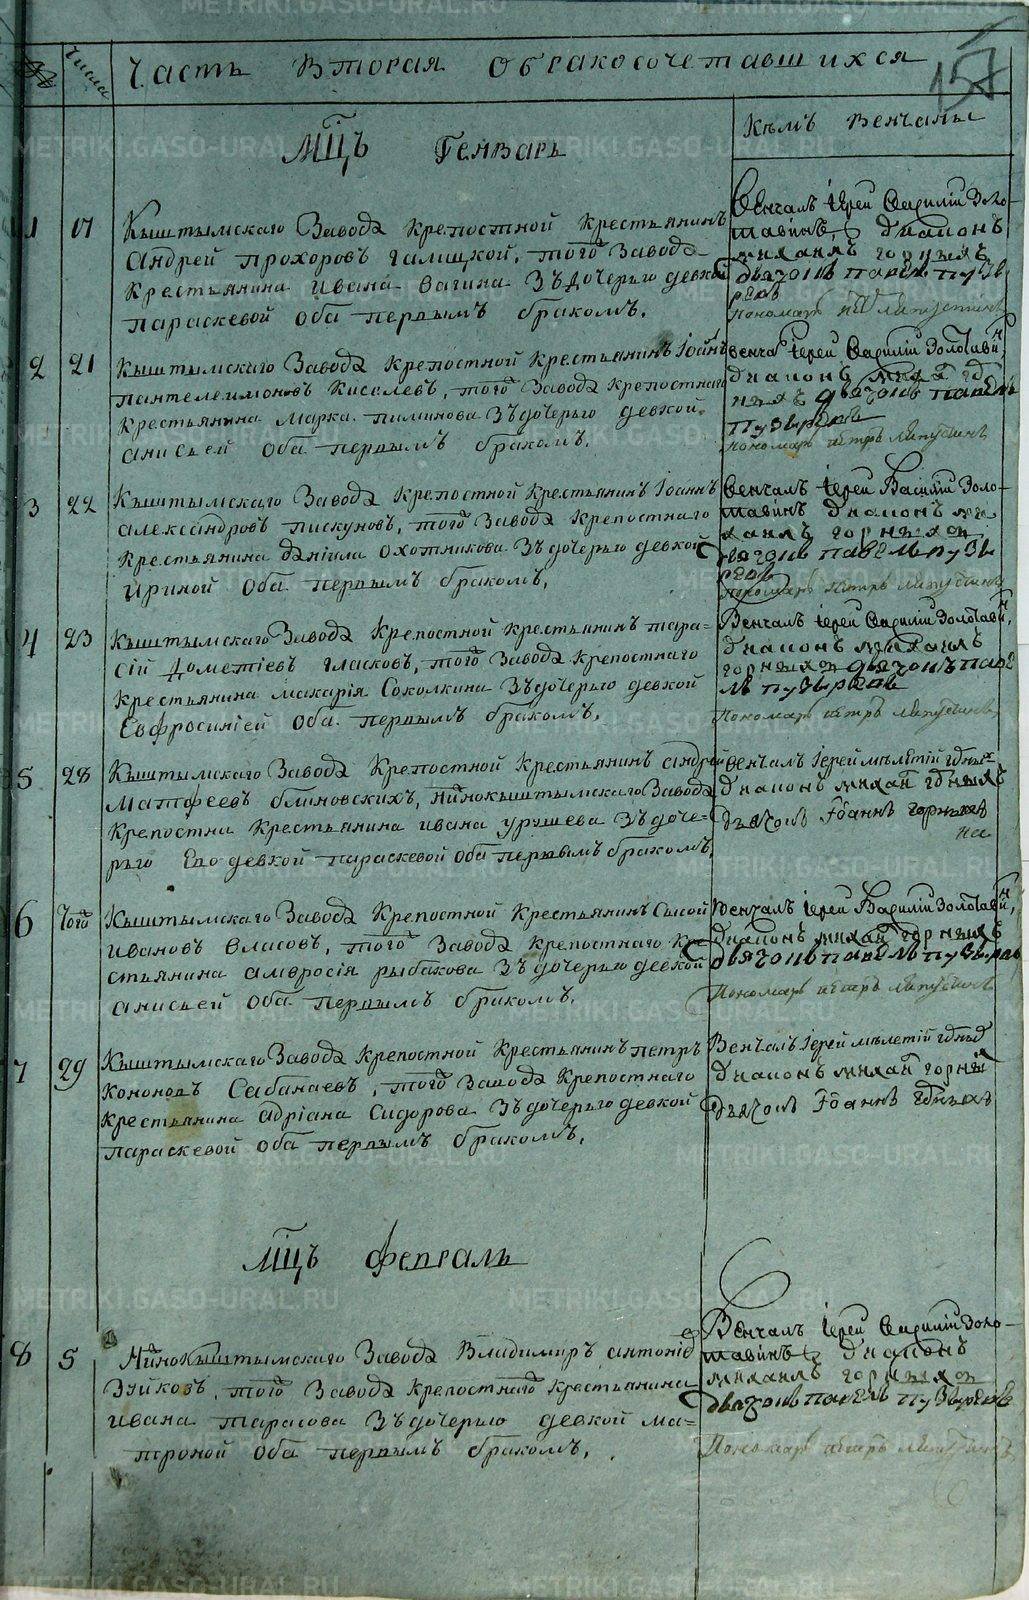 157
№
Числа
Часть Вторая О бракосочетавшихся
Кѣмъ Венчаны
Мцъ Генварь
1 17 Кыштымскаго Завода Крепостной Крестьянинъ
Андрей Прохоровъ Галицкой, того Завода
Крестьянина Ивана Вагина Зъ дочерью девкой
Параскевой Оба первымъ бракомъ.
Венчалъ Іерей Василій Золо-
тавинъ, Диаконъ
Михаилъ Горныхъ
дьячокъ Павелъ Пузы
ревъ
Пономарь Петръ Ляпустинъ
2 21 Кыштымскаго Завода Крепостной Крестьянинъ Іоаннъ
Пантелеимоновъ Киселевъ, того Завода Крепостнаго
Крестьянина Марка Пиминова Зъ дочерью девкой
Анисьей Оба первымъ бракомъ.
Венча Іерей Василій Золотавин,
Диаконъ Миха Гор
ныхъ дьячокъ Павелъ
Пузыревъ
Пономарь Петръ Ляпустинъ
3 22 Кыштымскаго Завода Крепостной Крестьянинъ Іоаннъ
Александровъ Пискуновъ, того Завода Крепостнаго
Крестьянина Даніила Охотникова Зъ дочерью девкой
Ириной Оба первымъ бракомъ.
Венчалъ Іерей Василій Золо-
тавинъ Диаконъ Ми
хаилъ Горныхъ
дьячокъ Павелъ Пузы
ревъ
Пономарь Петръ Ляпустинъ
4 23 Кыштымскаго Завода Крепостной Крестьянинъ Тара-
сій Дометіевъ Гласковъ, того Завода Крепостнаго
Крестьянина Макарія Соколкина Зъ дочерью девкой
Евфросиніей Оба первымъ бракомъ.
Венчалъ Іерей Василій Золотавин,
Диаконъ Михаилъ
Горныхъ дьячокъ Паве
лъ Пузыревъ
Пономарь Петръ Ляпустинъ
5 28 Кыштымскаго Завода Крепостной Крестьянинъ Андрей
Матфеевъ Блиновскихъ, Нижнокыштымскаго Завода
Крепостна Крестьянина Ивана Урушева Зъ доче-
рью Его девкой Параскевой Оба первымъ бракомъ.
Венчалъ Іерей Мелетій
Диаконъ Михаи Горныхъ
Дьячокъ Іоаннъ
6 Того Кыштымскаго Завода Крепостной Крестьянинъ Сысой
Ивановъ Власовъ, того Завода Крепостнаго Кре
стьянина Амвросія Рыбакова Зъ дочерью девкой
Анисьей Оба первымъ бракомъ.
Венчалъ Іерей Василій Золотавин,
Диаконъ Михаи Горныхъ
дьячокъ Павелъ Пузыревъ
Пономарь Петръ Ляпустинъ
7 29 Кыштымскаго Завода Крепостной Крестьянинъ Петръ
Кононовъ Сабанаевъ, того Завода Крепостнаго
Крестьянина Адріана Сидорова Зъ дочерью девкой
Параскевой Оба первымъ бракомъ.
Венчалъ Іерей Мелетій
Диаконъ Михаи Горны
Дьячокъ Іоаннъ
Мцъ Февраль
8 5 Нижнокыштымскаго Завода Владимиръ Антоніе
Зуйковъ, того Завода Крепостнаго Крестьянина
Ивана Тарасова Зъ дочерью девкой Ма-
троной Оба первымъ бракомъ.
Венчалъ Іерей Василій Золо-
тавинъ Диаконъ
Михаилъ Горныхъ
дьячокъ Павелъ Пузыревъ
Пономарь Петръ Ляпустинъ
METRIKI.GASO-URAL.RU